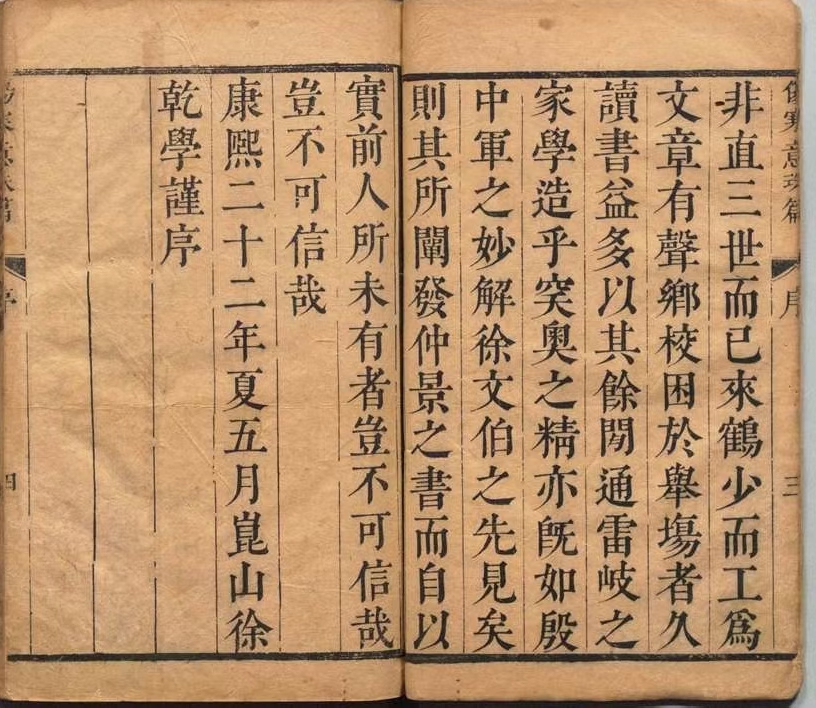 傷寒意珠篇 序 三
非直三世而已來鶴少而工爲
文章有聲鄉校困於舉塲者久
讀書益多以其餘閒通雷岐之
家學造乎突奧之精亦旣如殷
中軍之妙解徐文伯之先見矣
則其所闡發仲景之書而自以
實前人所未有者豈不可信哉
豈不可信哉
康熙二十二年夏五月崑山徐
乾學謹序
傷寒意珠篇 序 四